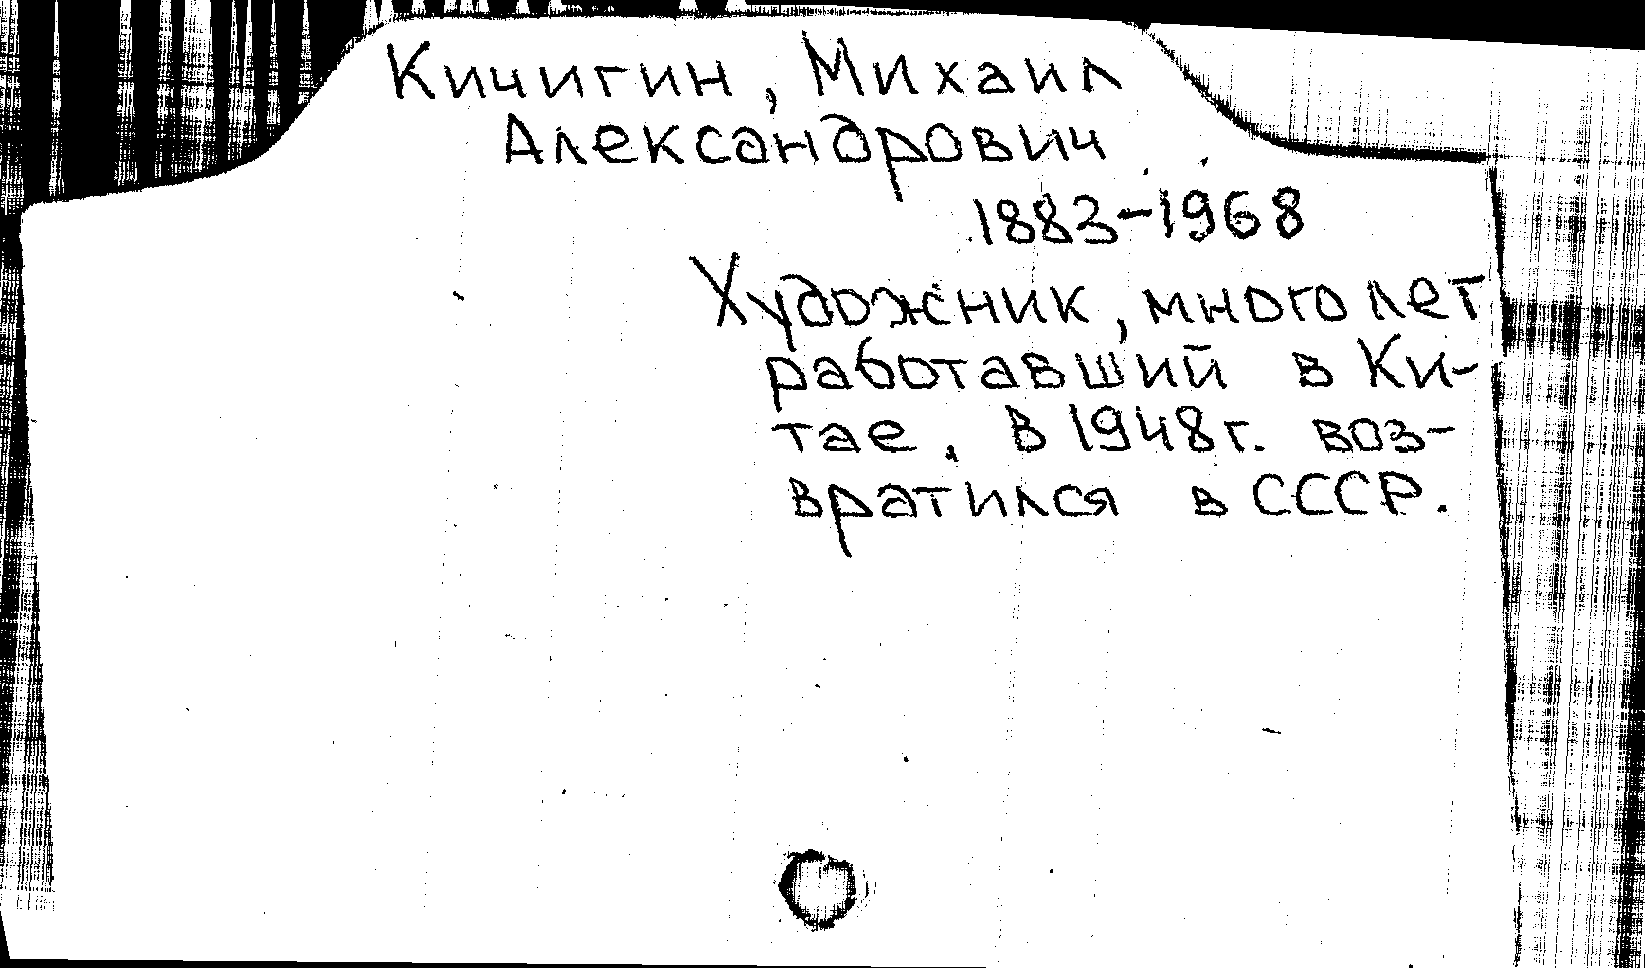 Кичигин, Михаил
Александрович
1883-1968
Художник, много лет
работавший в Ки-
тае. В 1948 г. воз-
вратился в СССР.